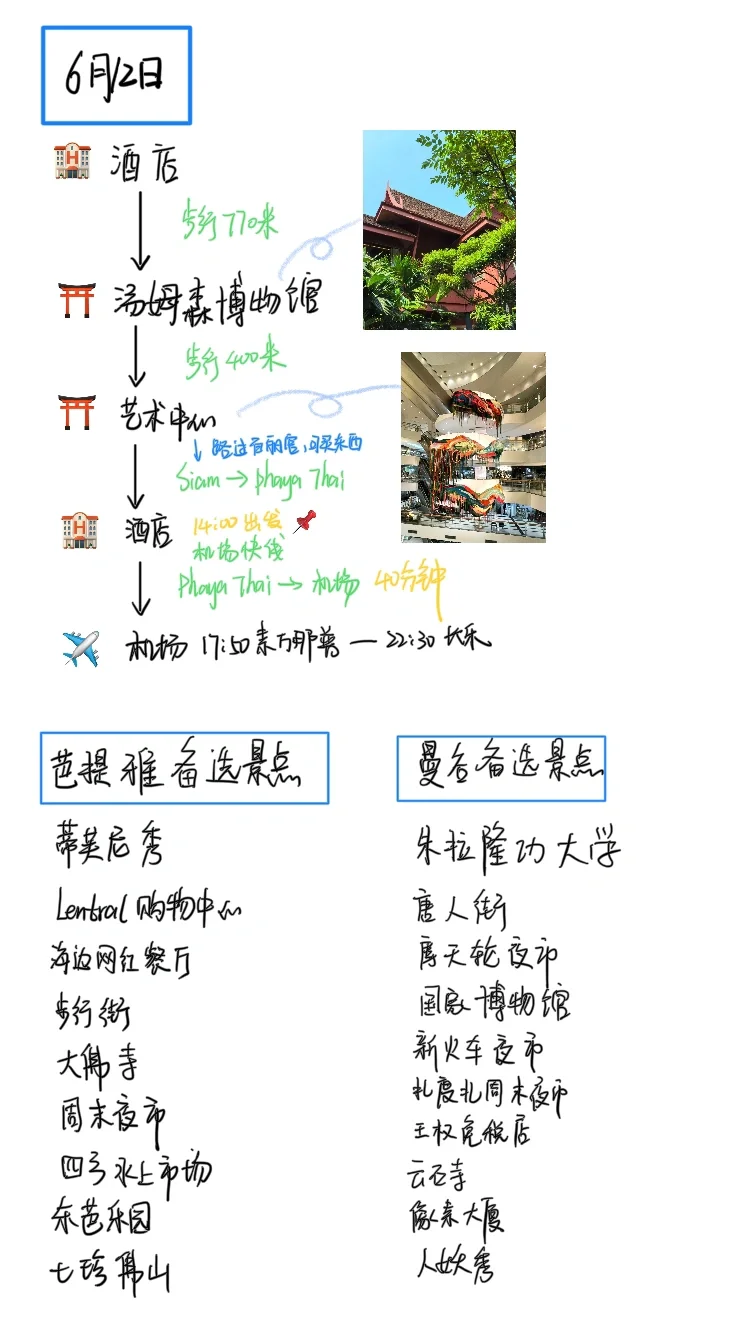 6月12日
酒店
步行770米
汤姆森博物馆
步行400米
艺术中心
↓路过百丽宫,可买东西
Siam → phaya Thai
酒店 14:00 出发
机场快线
Phaya Thai → 机场 40分钟
机场 17:50 素万那普 — 22:30 长乐
芭提雅备选景点
蒂芙尼秀
Lentral 购物中心
海边网红餐厅
步行街
大佛寺
周末夜市
四方水上市场
东芭乐园
七珍佛山
曼谷备选景点
朱拉隆功大学
唐人街
摩天轮夜市
国家博物馆
新火车夜市
扎度扎周末夜市
王权免税店
云石寺
像素大厦
人妖秀